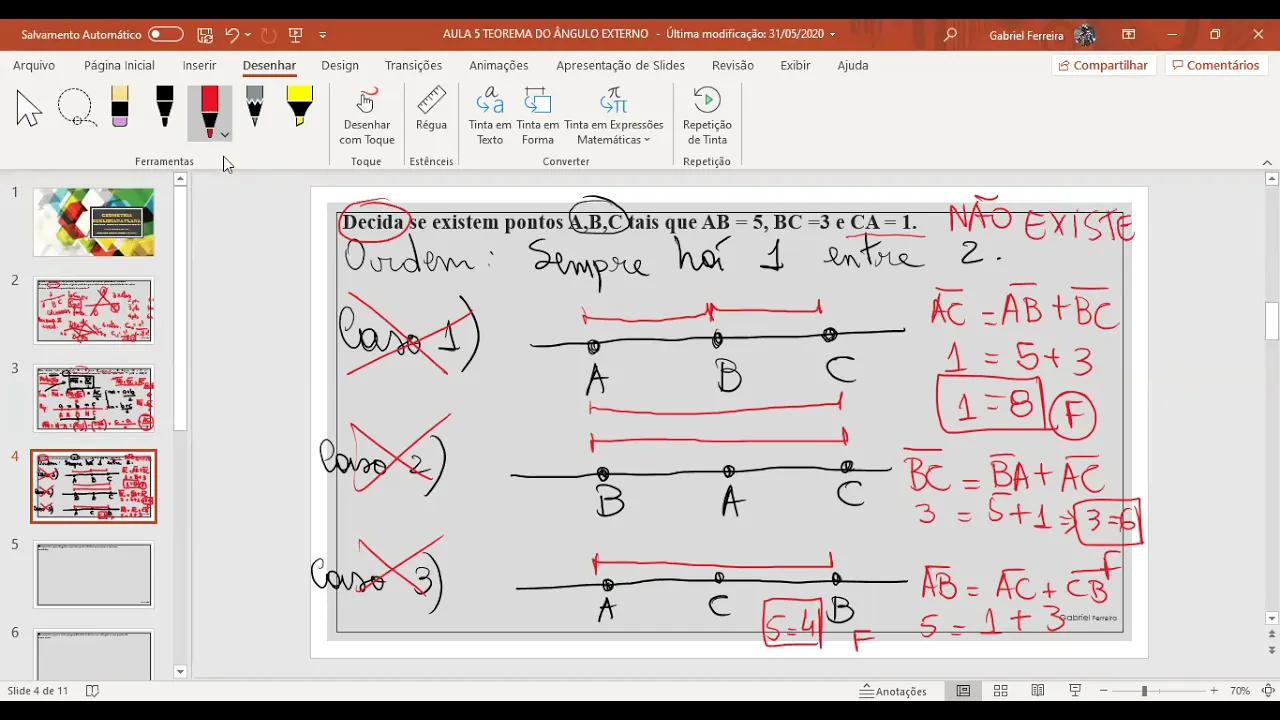 Salvamento Automático
AULA 5 TEOREMA DO ÂNGULO EXTERNO - Última modificação: 31/05/2020
Gabriel Ferreira
Arquivo Página Inicial Inserir Desenhar Design Transições Animações Apresentação de Slides Revisão Exibir Ajuda
Compartilhar Comentários
Desenhar com Toque
Régua
Tinta em Texto
Tinta em Forma
Tinta em Expressões Matemáticas
Repetição de Tinta
Ferramentas Toque Estênceis Converter Repetição
1
GEOMETRIA EUCLIDIANA PLANA
2
3
4
5
6
Decida se existem pontos A,B,C tais que AB = 5, BC =3 e CA = 1.
NÃO EXISTE
Ordem: Sempre há 1 entre 2.
Caso 1)
A B C
AC = AB + BC
1 = 5+3
1 = 8 F
Caso 2)
B A C
BC = BA + AC
3 = 5+1 ⇒ 3=6
F
Caso 3)
A C B
5=4 F
AB = AC + CB
5 = 1 + 3
Gabriel Ferreira
Slide 4 de 11
Anotações
70%